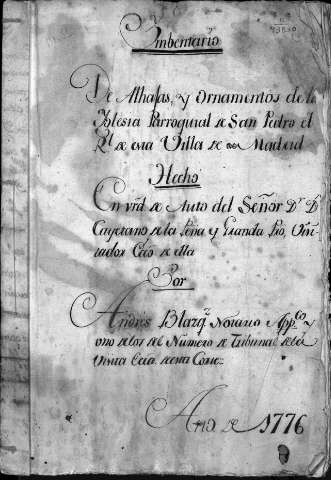 Imbentario
De Alhajas, y Ornamentos de la
Iglesia Parroquial de San Pedro el
Rl. de esta Villa de Madrid
Hecho
En vrd. de Auto del Señor Dr. Dn.
Cayetano de la Peña y Granda Pro, Visi-
tador Ecco de ella
Por
Andres Blazqz. Notario Appco y
uno de los del Numero de Tribunal de la
Visita Ecca. de esta Corte
Año de 1776